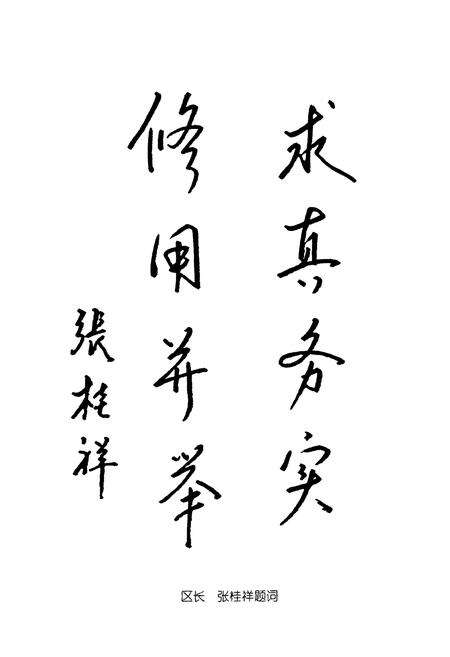 求真务实
修用并举
張桂祥
区长 张桂祥题词